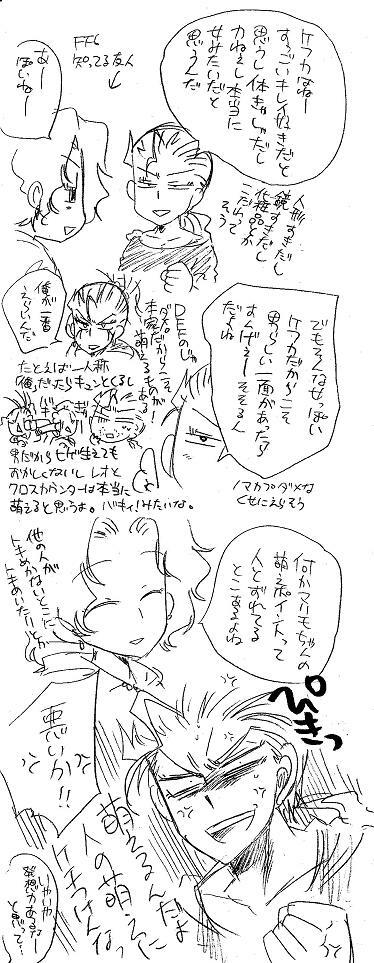 ケフカはねー
すっごいキレイ好きだと
思うし体きゃしゃだし
力ねぇし本当に
女みたいだと
思うんだ
FF6
知ってる友人
↓
あー
ぽいねー
人形すきだし
鏡すきだし
化粧品とか
こだわって
そう
でもそんな女っぽい
ケフカだからこそ
男らしい一面があったら
すんげぇーそそるん
だよね
DFFのじゃ
ダメ
本家だからこそ
萌えるものが
ある
俺が一番
えらいんだ
たとえば一人称
俺だったらキュンとくるし
男だからヒゲ生えても
おかしくないし レオと
クロスカウンターは本当に
萌えると思うよ。バキィ!みたいな。
ノマカプダメな
くせにえらそう
何かマリモちゃんの
萌えポイントって
人とずれてる
とこあるよね
他の人が
トキめかないとこに
トキめいたりとか
ぴきっ
悪いか!!
萌えるんだよ
人の萌えに
ケチつけんなっ
いやいや
発想力あるなー
と思って…